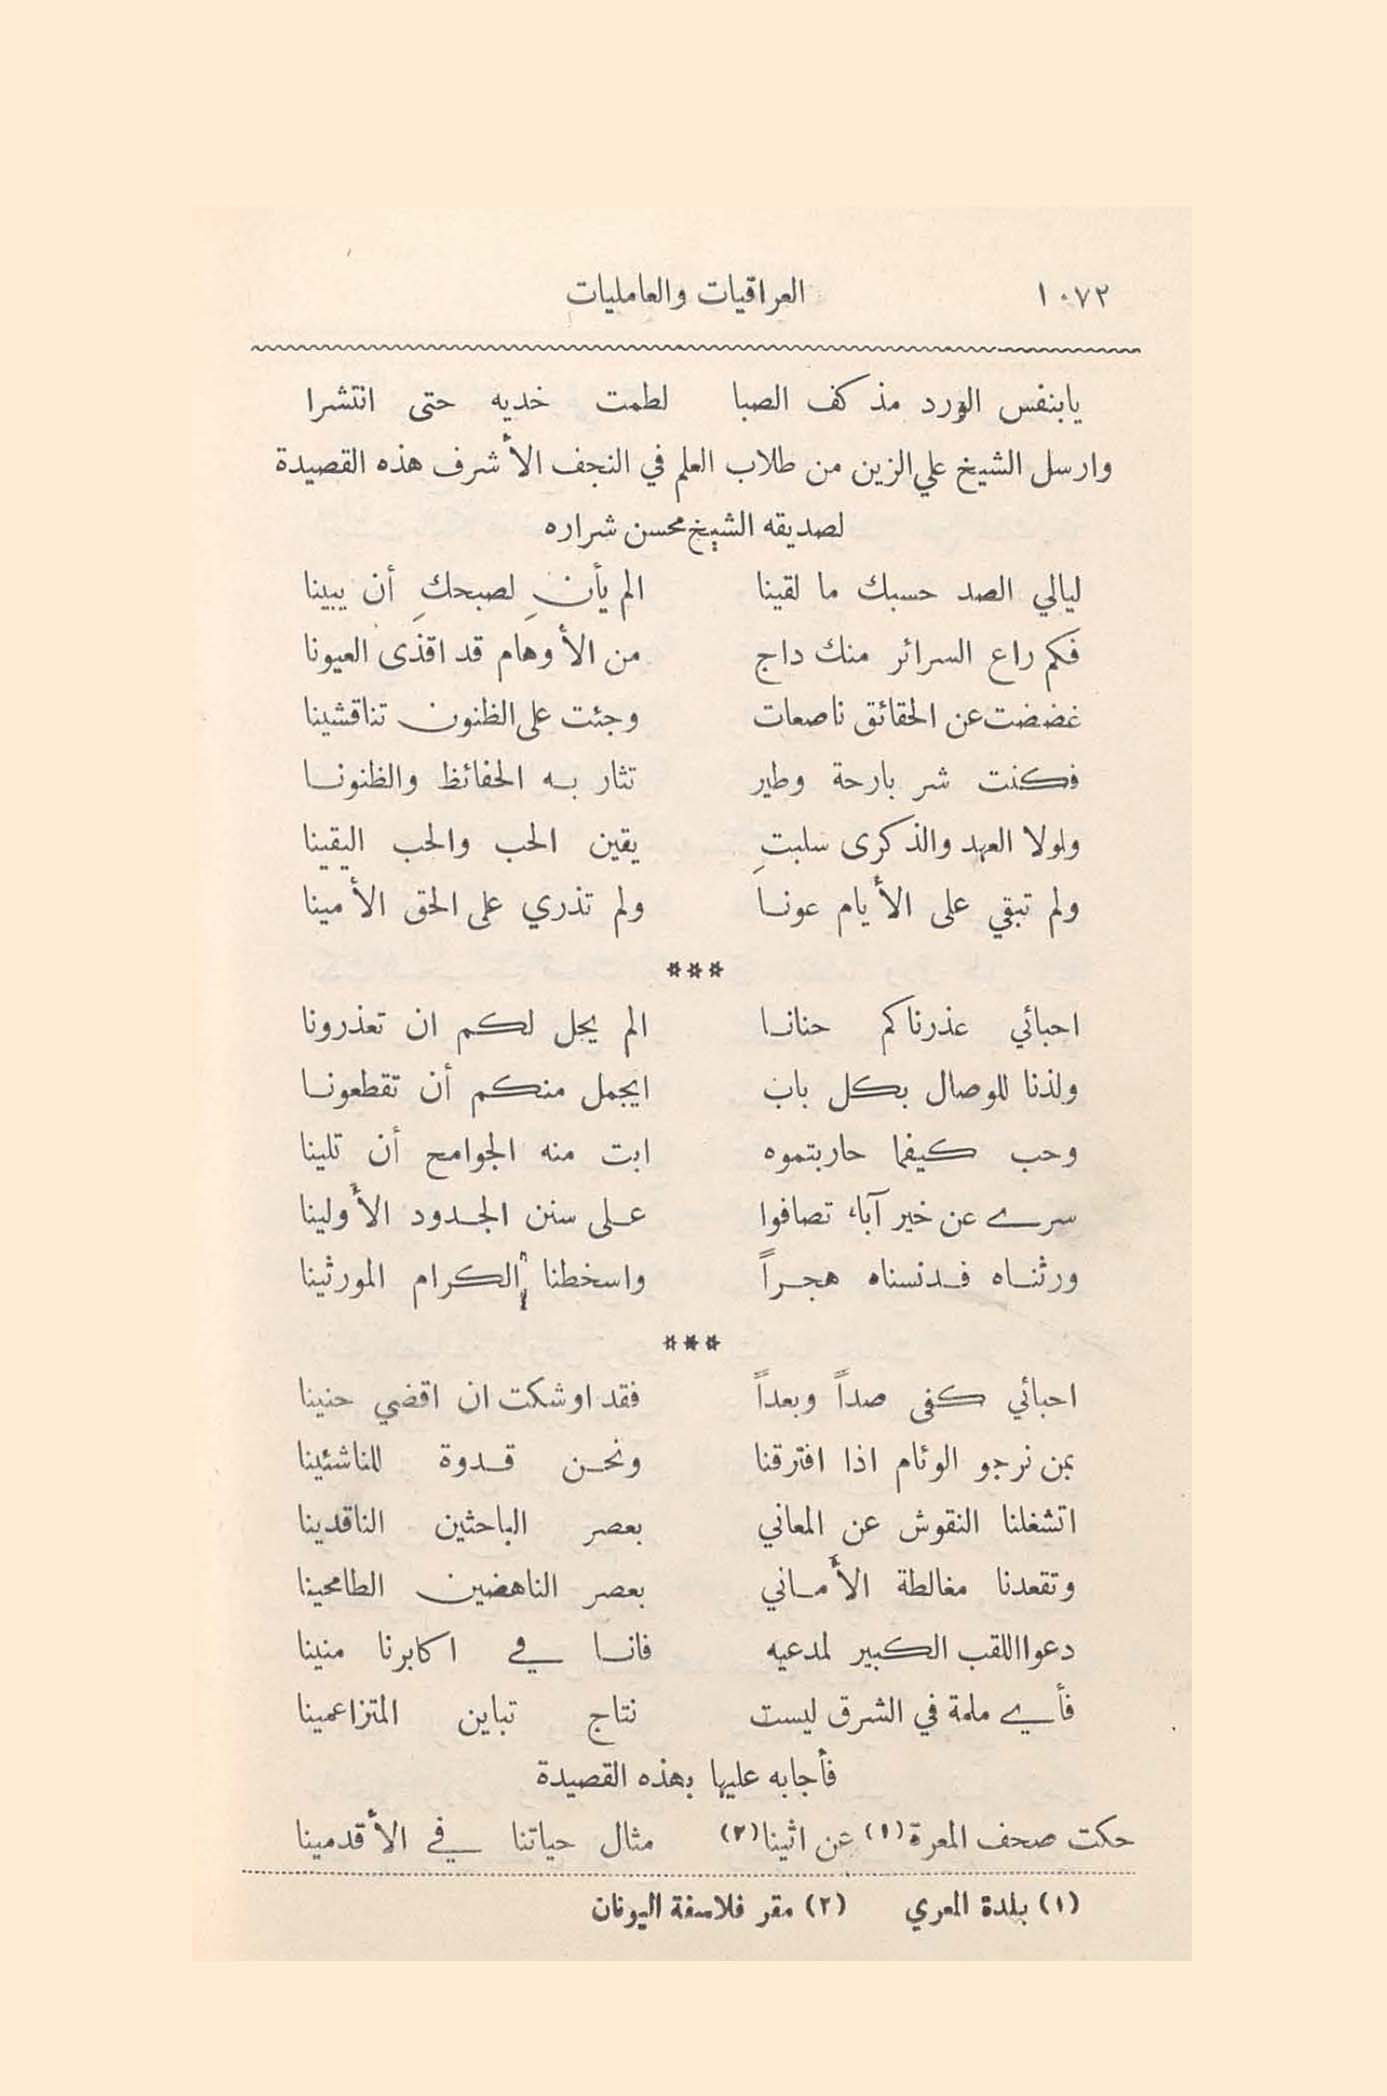 ١٠٧٢ العراقيات والعامليات
يابنفس الورد مذ كف الصبا لطمت خديه حتى انتشرا
وارسل الشيخ علي الزين من طلاب العلم في النجف الأشرف هذه القصيدة
لصديقه الشيخ محسن شراره
ليالي الصد حسبك ما لقينا الم يأنِ لصبحكِ أن يبينا
فكم راع السرائر منك داج من الأوهام قد اقذى العيونا
غضضت عن الحقائق ناصعات وجئت على الظنون تناقشينا
فكنت شر بارحة وطير تثار به الحفائظ والظنونا
ولولا العهد والذكرى سلبتِ يقين الحب والحب اليقينا
ولم تبقي على الأيام عونا ولم تذري على الحق الأمينا
***
احبائي عذرناكم حنانا الم يجل لكم ان تعذرونا
ولذنا للوصال بكل باب ايجمل منكم أن تقطعونا
وحب كيفما حاربتموه ابت منه الجوامح أن تلينا
سرى عن خير آباء تصافوا على سنن الجدود الأولينا
ورثناه فدنسناه هجراً واسخطنا الكرام المورثينا
***
احبائي كفى صداً وبعداً فقد اوشكت ان اقضي حنينا
بمن نرجو الوئام اذا افترقنا ونحن قدوة للناشئينا
اتشغلنا النقوش عن المعاني بعصر الباحثين الناقدينا
وتقعدنا مغالطة الأماني بعصر الناهضين الطامحينا
دعوا اللقب الكبير لمدعيه فانا في اكابرنا منينا
فأي ملمة في الشرق ليست نتاج تباين المتزاعمينا
فأجابه عليها بهذه القصيدة
حكت صحف المعرة (١) عن اثينا (٢) مثال حياتنا في الأقدمينا
(١) بلدة المعري (٢) مقر فلاسفة اليونان